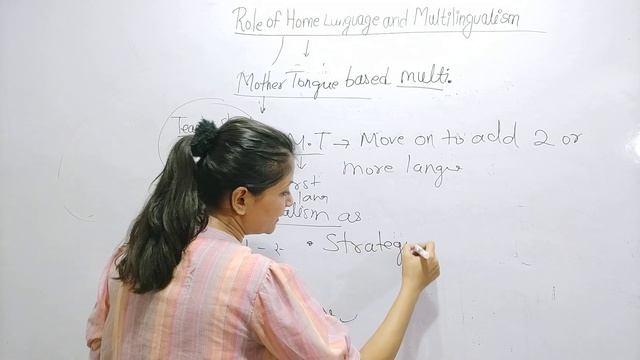 Role of Home Language and Multilingualism
Mother Tongue based multi.
M.T → Move on to add 2 or
more langu
lan
as
• Strateg